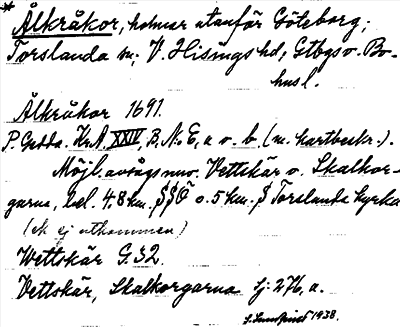 * Ålkråkor, holmar utanför Göteborg;
Torslanda sn; V. Hisings hd; Gtbgs o. Bo-
husl.
Ålkråkor 1691.
P. Gedda. Kr.A. XXIV, B. No 6, a o. b. (m. kartbeskr.).
Möjl. avågs nuv. Vettskär o. Skalkor-
garna, bel. 4.8 km. SSÖ o. 5 km. S Torslanda kyrka
(ek ej utkommen)
Wettskär G.32.
Vettskär, Skalkorgarna Sj: 276, a.
1938.